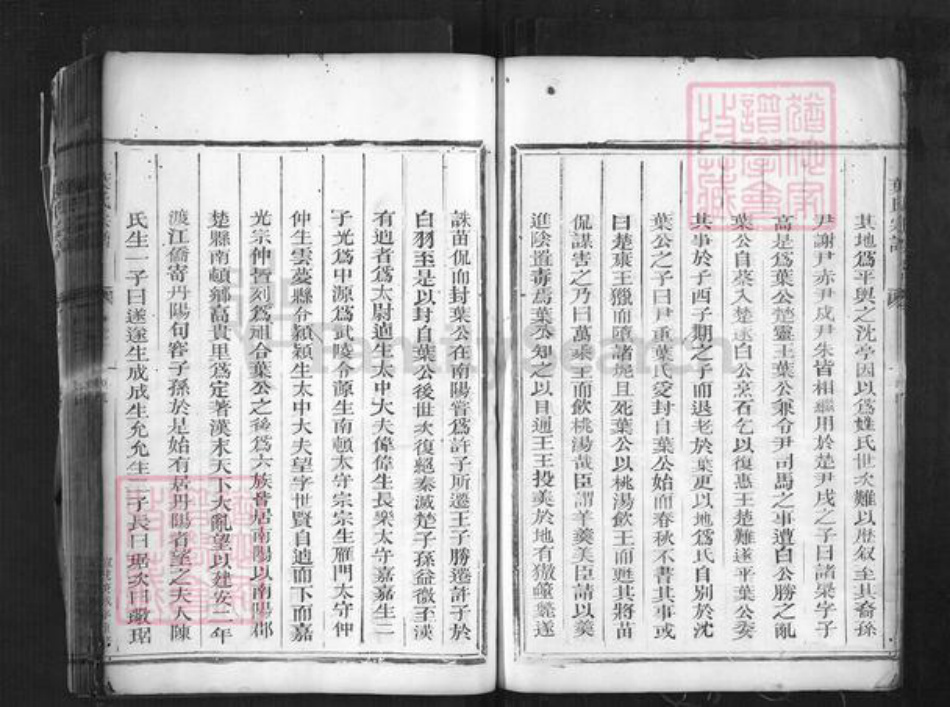 其地爲平輿之沈亭因以爲姓氏世次難以歷叙至其裔孫
尹謝尹赤尹戌尹朱皆相繼用於楚尹戌之子曰諸梁字子
高是爲葉公楚靈王葉公兼令尹司馬之事遭白公勝之亂
葉公自蔡入楚逐白公烹石乞以復惠王楚難遂平葉公委
其事於子西子期之子而退老於葉更以地爲氏自別於沈
葉公之子曰尹重葉氏受封自葉公始而春秋不書其事或
曰楚襄王獵而墮諸境且死葉公以桃湯飲王而甦其將苗
侃謀害之乃曰萬乘主而飲桃湯哉臣謂羊羹美臣請以羹
進陰道毒焉葉公知之以目通王王投羹於地有獓
誅苗侃而封葉公在南陽嘗爲許子所遷王子勝遷許子於
白羽至是以封自葉公後世次復絕秦滅楚子孫益微至漢
有遒者爲太尉遒生太中大夫偉偉生長樂太守嘉嘉生二
子光爲甲源爲武陵令源生南頓太守宗宗生雁門太守仲
仲生雲夢縣令頴頴生太中大夫望字世賢自遒而下而嘉
光宗仲晢列爲祖合葉公之後爲六族昔居南陽以南陽郡
楚縣南頓鄉高貴里爲定著漢末天下大亂望以建安二年
渡江僑寄丹陽句容子孫於是始有居丹陽者望之夫人陳
氏生一子曰遂遂生成成生允允生二子長曰琚次曰璥琚